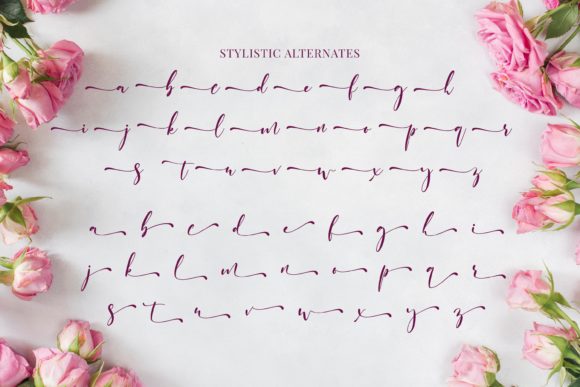 STYLISTIC ALTERNATES
a b c d e f g h
i j k l m n o p q r
s t u v w x y z
a b c d e f g h i
j k l m n o p q r
s t u v w x y z